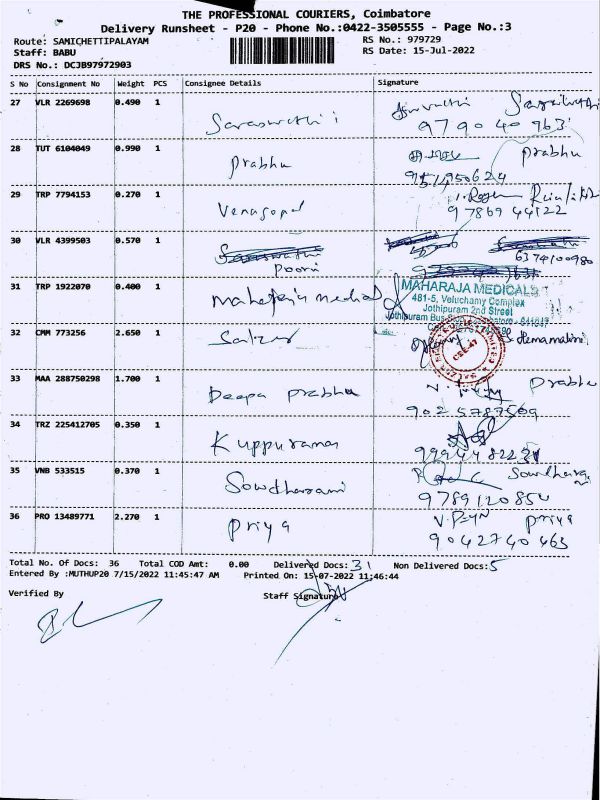 THE PROFESSIONAL COURIERS, Coimbatore
Delivery Runsheet - P20 - Phone No.:0422-3505555 - Page No.:3
Route: SAMICHETTIPALAYAM
RS No.: 979729
Staff: BABU
RS Date: 15-Jul-2022
DRS No.: DCJB97972903
S No Consignment No Weight PCS Consignee Details Signature
27 VLR 2269698 0.490 1 Saraswathi
97904 0 963
28 TUT 6104049 0.990 1 Prabhu Prabhu
9514950624
29 TRP 7794153 0.270 1 Venagopal
97869 44122
30 VLR 4399503 0.570 1
Poorni 6374100980
31 TRP 1922070 0.400 1 Medical
MAHARAJA MEDICALS
481-5, Veluchamy Complex
Jothipuram 2nd Street
32 CMM 773256 2.650 1 Salzer Hemamalini
33 MAA 288750298 1.700 1 Deepa Prabhu Prabhu
9025787509
34 TRZ 225412705 0.350 1 Kuppuraman
35 VNB 533515 0.370 1 Sowdharani
9789120850
36 PRO 13489771 2.270 1 Priya Priya
9042740463
Total No. Of Docs: 36 Total COD Amt: 0.00 Delivered Docs: 31 Non Delivered Docs: 5
Entered By :MUTHUP20 7/15/2022 11:45:47 AM Printed On: 15-07-2022 11:46:44
Verified By Staff Signature